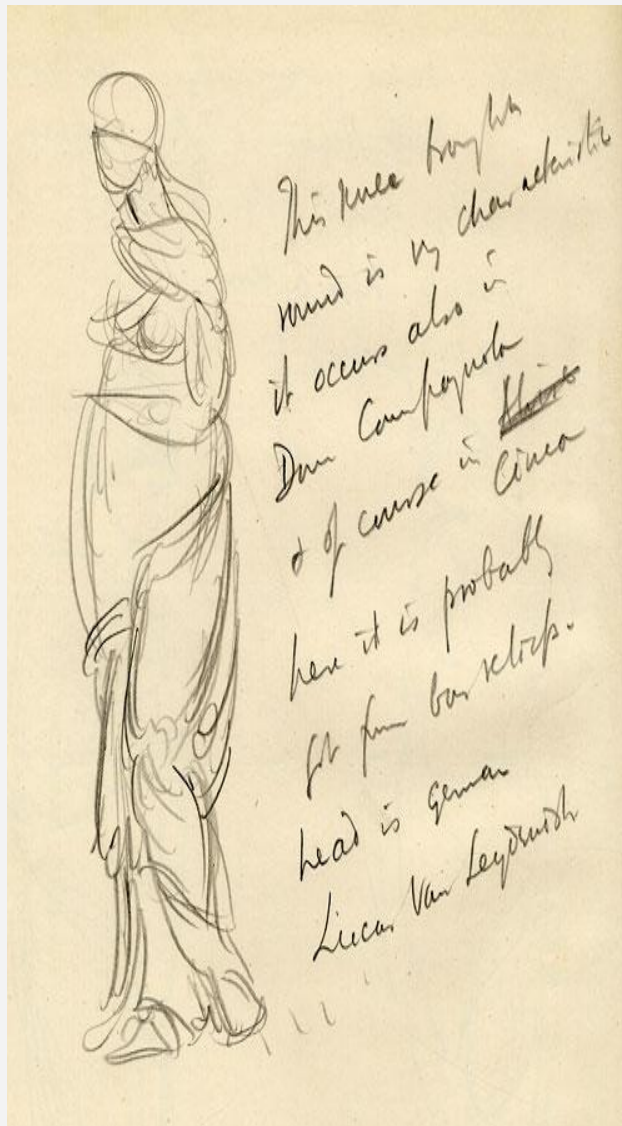 This knee brought
round is vy characteristic
it occurs also in
Dom Campagnola
& of course in
Cima
here it is probably
got from bas reliefs.
head is german
Lucas Van Leydenish